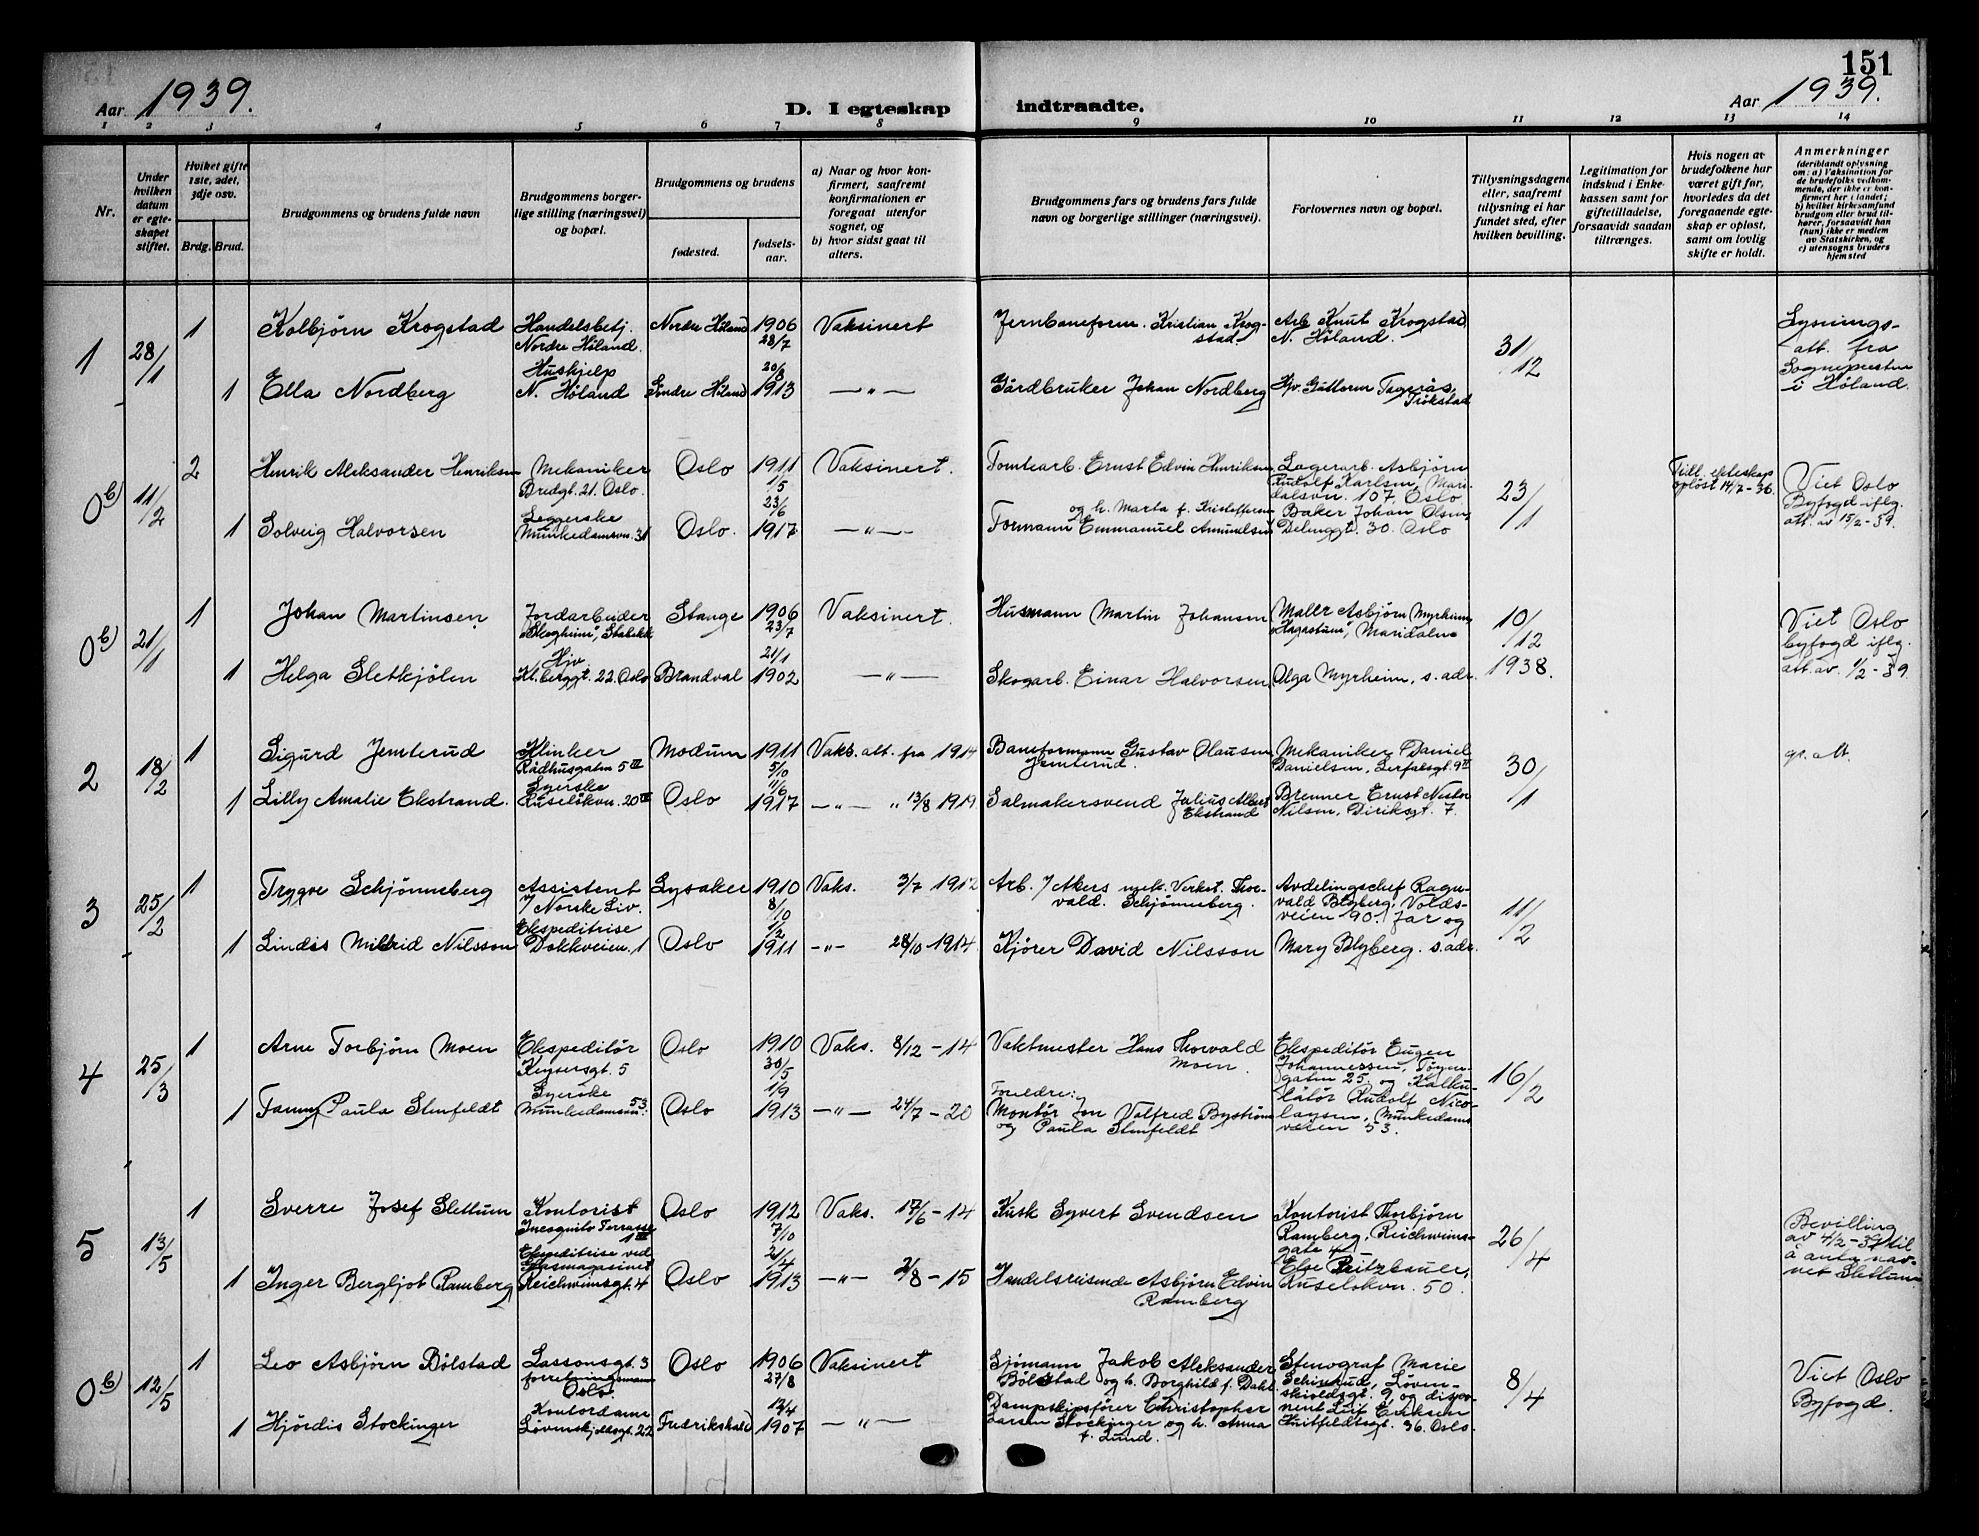 151
Aar 1939.
D. I egteskap indtraadte.
Aar 1939.
1 2 3 4 5 6 7 8 9 10 11 12 13 14
Nr.
Under hvilken datum er egteskapet stiftet.
Hvilket gifte 1ste, 2det, 3dje osv.
Brdg. Brud.
Brudgommens og brudens fulde navn
Brudgommens borgerlige stilling (næringsvei) og bopæl.
Brudgommens og brudens
fødested.
fødselsaar.
a) Naar og hvor konfirmert, saafremt konfirmationen er foregaat utenfor sognet, og
b) hvor sidst gaat til alters.
Brudgommens fars og brudens fars fulde navn og borgerlige stillinger (næringsvei).
Forlovernes navn og bopæl.
Tillysningsdagene eller, saafremt tillysning ei har fundet sted, efter hvilken bevilling.
Legitimation for indskud i Enkekassen samt for giftetilladelse, forsaavidt saadan tiltrænges.
Hvis nogen av brudefolkene har været gift før, hvorledes da det foregaaende egteskap er opløst, samt om lovlig skifte er holdt.
Anmerkninger
(deriblandt oplysning om: a) Vaksination for de brudefolks vedkommende, der ikke er konfirmert her i landet; b) hvilket kirkesamfund brudgom eller brud tilhører, forsaavidt han (hun) ikke er medlem av Statskirken, og c) utensogns bruders hjemsted
1 28/1 1 Kolbjørn Krogstad Handelsbetj. Nordre Høland. Nordre Høland 1906 28/7 Vaksinert Jernbaneform. Kristian Krogstad Arb. Knut Krogstad, N. Høland. 31/12 Lysningsatt. fra Sognepresten i Høland.
1 Ella Nordberg Hushjelp N. Høland Søndre Høland 20/8 1913 —"— Gårdbruker Johan Nordberg Hj. Guttorm Trøkstad
0b) 11/2 2 Henrik Aleksander Henriksen Mekaniker Bredgt. 21. Oslo. Oslo 1911 1/5 Vaksinert. Tomtearb. Ernst Edvin Henriksen og h. Marta f. Kristoffersen Lagerarb. Asbjørn Rudolf Karlsen, Maridalsvn. 107, Oslo 23/1 Tidl. ekteskap opløst 14/2-36. Viet Oslo Byfogd iflg. att. av 15/2-39.
1 Solveig Halvorsen Munkedamsvn. 31 Oslo. 23/6 1917 —"— Formann Emmanuel Amundsen Baker Johan Olsen, 30. Oslo
0b) 21/1 1 Johan Martinsen Jordarbeider "Skogheim", Stabekk Stange 1906 23/7 Vaksinert. Husmann Martin Johansen Maler Asbjørn Myrheim, Maridalen 10/12 1938. Viet Oslo byfogd iflg. att. av. 1/2-39.
1 Helga Sletkjølen Hjv. 22. Oslo Brandval 21/1 1902 —"— Skogarb. Einar Halvorsen. Olga Myrheim, s. adr.
2 18/2 1 Sigurd Jemterud Rådhusgaten 5 III Modum 1911 5/10 Vaks. att. fra 1914 Baneformann Gustav Olausen Jemterud. Mekaniker Daniel Danielsen, 9 II 30/1 gr. att.
1 Lilly Amalie Ekstrand. Syerske Ruseløkvn. 20 III Oslo 11/6 1917 —"— " 13/8 1919 Salmakersvend Julius Albert Ekstrand Brenner Ernst Nestor Nilsen, Diriksgt. 7.
3 25/2 1 Trygve Schjønneberg Assistent i Norske Liv. Lysaker 1910 8/10 Vaks. 3/7 1912 Arb. i Akers mek. Verkst. Thorvald. Schjønneberg. Avdelingschef Ragnvald Blyberg, Voldsveien 90. Jar og 11/2
1 Lindis Mildrid Nilsson Ekspeditrise Dokkveien. 1 Oslo 1/2 1911 —"— 28/10-1914 Kjører David Nilsson Mary Blyberg. s. adr.
4 25/3 1 Arne Torbjørn Moen Ekspeditør Keysersgt. 5 Oslo 1910 30/5 Vaks. 8/12-14 Vaktmester Hans Thorvald Moen. Ekspeditør Eugen Johannessen, Tøyengaten 25. og Kalkulatør Rudolf Nicolaysen, Munkedamsveien 53. 16/2
1 Fanny Paula Stenfeldt Syerske Munkedamsvn. 53. Oslo 1/9 1913 —"— 24/7-20 Foreldre: Montør Jon Valfred Byström og Paula Stenfeldt
5 13/5 1 Sverre Josef Slettum Kontorist Incognito Terrasse 1 III Oslo 1912 7/10 Vaks. 17/6-14 Kusk Syvert Svendsen Kontorist Thorbjørn Ramberg, Reichweinsgate 4 26/4 Bevilling av 4/2-39 til å anta navnet Slettum
1 Inger Bergljot Ramberg Ekspeditrise ved Glasmagasinet Reichweinsgt. 4 Oslo 21/4 1913 —"— 2/8-15 Handelsreisende Asbjørn Edvin Ramberg Else Pritzbauer, Ruseløkvn. 50.
0b) 12/5 1 Leo Asbjørn Bølstad Lassonsgt. 3 forretningsmann Oslo. Oslo 1906 27/8 Vaksinert Sjømann Jakob Aleksander Bølstad og h. Borghild f. Dahl Stenograf Marie Schierud, Løvenskioldsgt. 9 og disponent Leif Eriksen Huitfeldtsgt. 36. Oslo. 8/4 Viet Oslo Byfogd.
1 Hjørdis Stockinger Kontordame Løvenskjoldsgt. 22 Fredrikshald 13/4 1907 —"— Dampskipsfører Christopher Larsen Stockinger og h. Anna f. Lund.